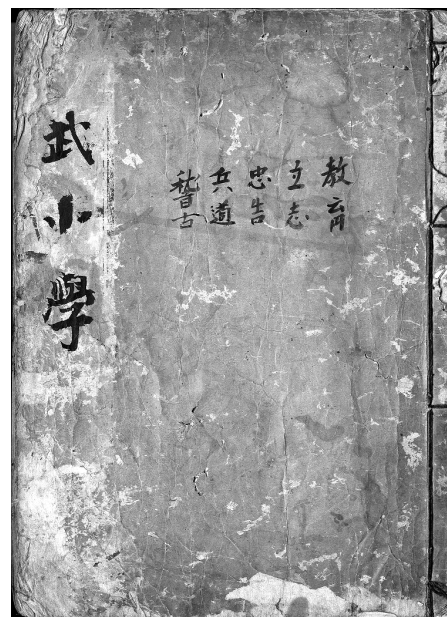 教育
立志
忠告
兵道
稽古
武小學